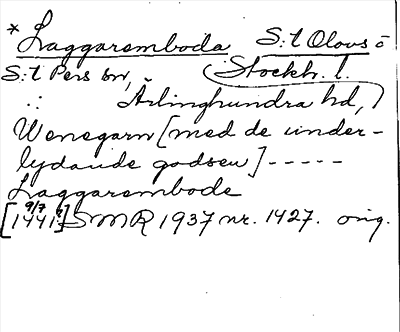 * Laggaremboda S:t Olovs ö
S:t Pers sn, Stockh. l.
.: Ärlinghundra hd,
Wenegarn [med de under-
lydande godsen] -----
Laggarembode
[1441 9/7] SMR 1937 nr. 1427. orig.